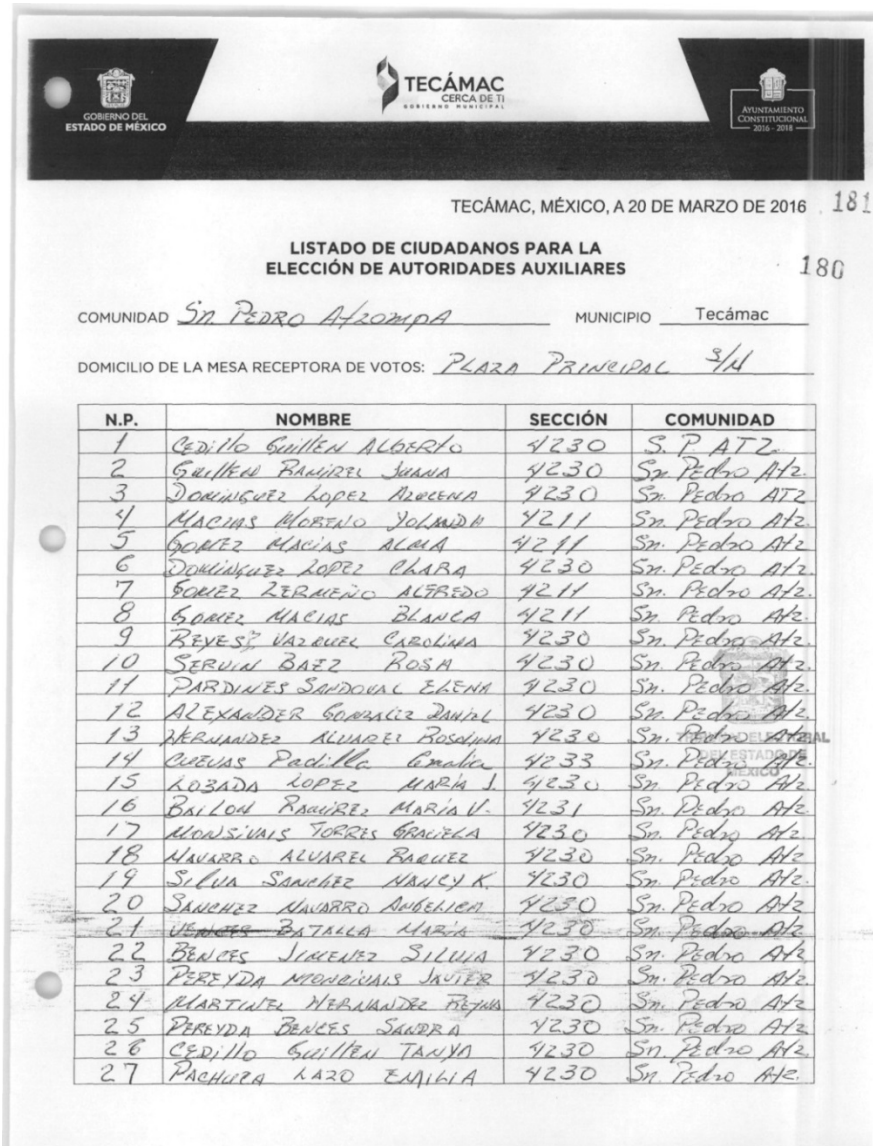 GOBIERNO DEL
ESTADO DE MÉXICO
TECÁMAC
CERCA DE TI
GOBIERNO MUNICIPAL
AYUNTAMIENTO
CONSTITUCIONAL
2016 - 2018
TECÁMAC, MÉXICO, A 20 DE MARZO DE 2016 181
LISTADO DE CIUDADANOS PARA LA
ELECCIÓN DE AUTORIDADES AUXILIARES
180
COMUNIDAD Sn. PEDRO AtzompA MUNICIPIO Tecámac
DOMICILIO DE LA MESA RECEPTORA DE VOTOS: PLAZA PRINCIPAL S/N
N.P. NOMBRE SECCIÓN COMUNIDAD
1 CEDillo GuillEN ALBERTO 4230 S. P. ATZ.
2 GuillEN RAMIREZ JUANA 4230 Sn. PEdro Atz.
3 DOMINGUEZ LOPEZ AZUCENA 4230 Sn. PEdro ATZ
4 MACIAS MORENO YOLANDA 4211 Sn. PEdro Atz.
5 GOMEZ MACIAS ALMA 4211 Sn. PEdro Atz.
6 DOMINGUEZ LOPEZ CLARA 4230 Sn. PEdro Atz.
7 GOMEZ ZERMEÑO ALFREDO 4211 Sn. PEdro Atz.
8 GOMEZ MACIAS BLANCA 4211 Sn. PEdro Atz.
9 REYES VAZQUEZ CAROLINA 4230 Sn. PEdro Atz.
10 SERVIN BAEZ ROSA 4230 Sn. PEdro Atz.
11 PARDINES SANDOVAL ELENA 4230 Sn. PEdro Atz.
12 ALEXANDER GONZALEZ DANIEL 4230 Sn. PEdro Atz.
13 HERNANDEZ ALVAREZ 4230 Sn. PEdro Atz.
14 CUEVAS Padilla Amalia 4233 Sn. PEdro Atz.
15 LOZADA LOPEZ MARÍA J. 4230 Sn. PEdro Atz
16 BAILON RAMIREZ MARÍA V. 4231 Sn. PEdro Atz.
17 MONSIVAIS TORRES GRACIELA 4230 Sn. PEdro Atz.
18 NAVARRO ALVAREZ RAQUEL 4230 Sn. PEdro Atz.
19 SILVA SANCHEZ NANCY K. 4230 Sn. PEdro Atz.
20 SANCHEZ NAVARRO ANGELICA 4230 Sn. PEdro Atz
21 BATALLA MARÍA 4230 Sn. PEdro Atz
22 BENCES JIMENEZ SILVIA 4230 Sn. PEdro Atz
23 PEREYDA MONCIVAIS JAVIER 4230 Sn. PEdro Atz.
24 MARTINEZ HERNANDEZ REYNA 4230 Sn. PEdro Atz.
25 PEREYDA BENCES SANDRA 4230 Sn. PEdro Atz
26 CEDillo GuillEN TANYA 4230 Sn. PEdro Atz.
27 PACHUCA LAZO EMILIA 4230 Sn. PEdro Atz.
DEL ESTADO DE
MÉXICO